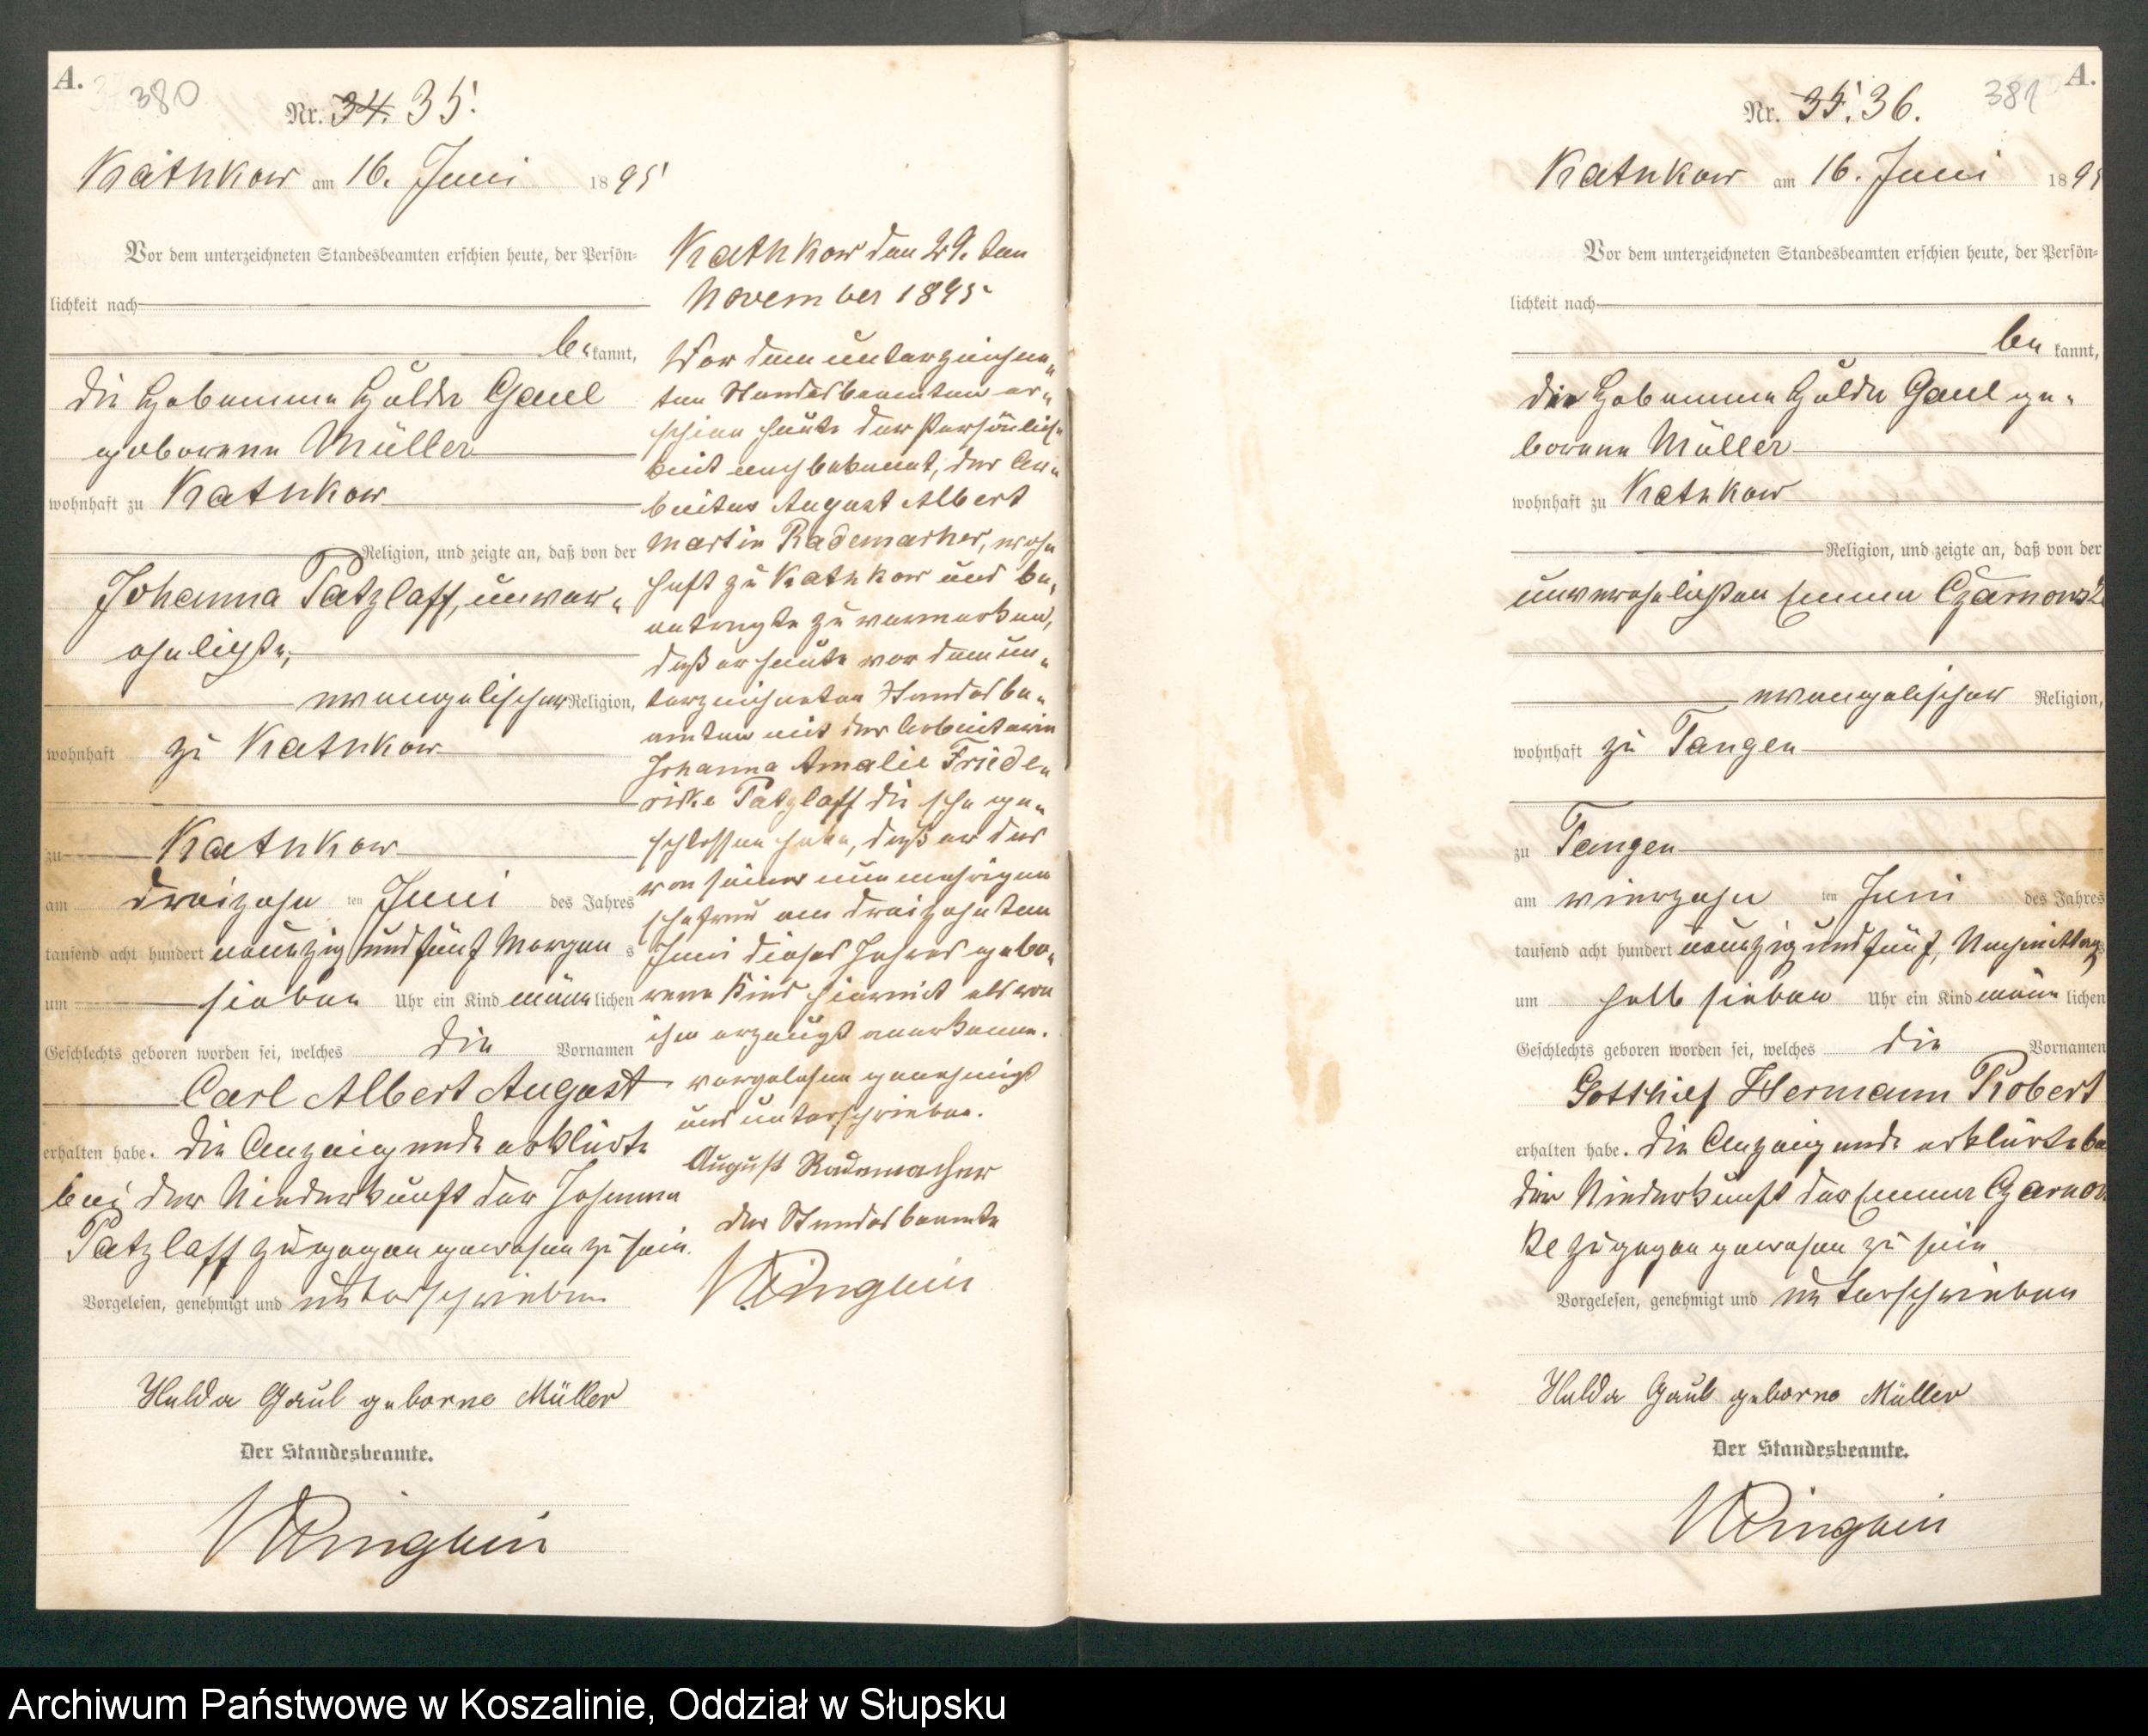 A.
380
Nr. 34. 35.
Kathkow am 16. Juni 1895
Vor dem unterzeichneten Standesbeamten erschien heute, der Persön-
lichkeit nach
be kannt,
die Hebamme Hulda Gaul
geborene Müller
wohnhaft zu Kathkow
Religion, und zeigte an, daß von der
Johanna Patzlaff, unver-
ehelichte,
evangelischer Religion,
wohnhaft zu Kathkow
zu Kathkow
am dreizehn ten Juni des Jahres
tausend acht hundert neunzig und fünf Morgen s
um sieben Uhr ein Kind männ lichen
Geschlechts geboren worden sei, welches die Vornamen
Carl Albert August
erhalten habe. Die Anzeigende erklärte
bei der Niederkunft der Johanna
Patzlaff zugegen gewesen zu sein.
Vorgelesen, genehmigt und unterschrieben
Hulda Gaul geborne Müller
Der Standesbeamte.
Kathkow den 29. ten
November 1895
Vor dem unterzeichne-
ten Standesbeamten er-
schien heute der Persönlich-
keit nach bekannt, der Ar-
beiter August Albert
Martin Rademacher, wohn
haft zu Kathkow und be-
antragte zu vermerken,
daß er heute vor dem un-
terzeichneten Standesbe-
amten mit der Arbeiterin
Johanna Amalie Friede-
rike Patzlaff die Ehe ge-
schlossen habe, daß er das
von seiner nunmehrigen
Ehefrau am dreizehnten
Juni dieses Jahres gebo-
rene Kind hiermit als von
ihm erzeugt anerkenne.
vorgelesen genehmigt
und unterschrieben.
August Rademacher
Der Standesbeamte
A.
381
Nr. 35. 36.
Kathkow am 16. Juni 1895
Vor dem unterzeichneten Standesbeamten erschien heute, der Persön-
lichkeit nach
be kannt,
die Hebamme Hulda Gaul ge-
borene Müller
wohnhaft zu Kathkow
Religion, und zeigte an, daß von der
unverehelichten Emma Czarnowske
evangelischer Religion,
wohnhaft zu Tangen
zu Tangen
am vierzehn ten Juni des Jahres
tausend acht hundert neunzig und fünf, Nachmittags
um halb sieben Uhr ein Kind männ lichen
Geschlechts geboren worden sei, welches die Vornamen
Gotthilf Hermann Robert
erhalten habe. Die Anzeigende erklärte be
der Niederkunft der Emma Czarnow
ke zugegen gewesen zu sein
Vorgelesen, genehmigt und unterschrieben
Hulda Gaul geborne Müller
Der Standesbeamte.
Archiwum Państwowe w Koszalinie, Oddział w Słupsku